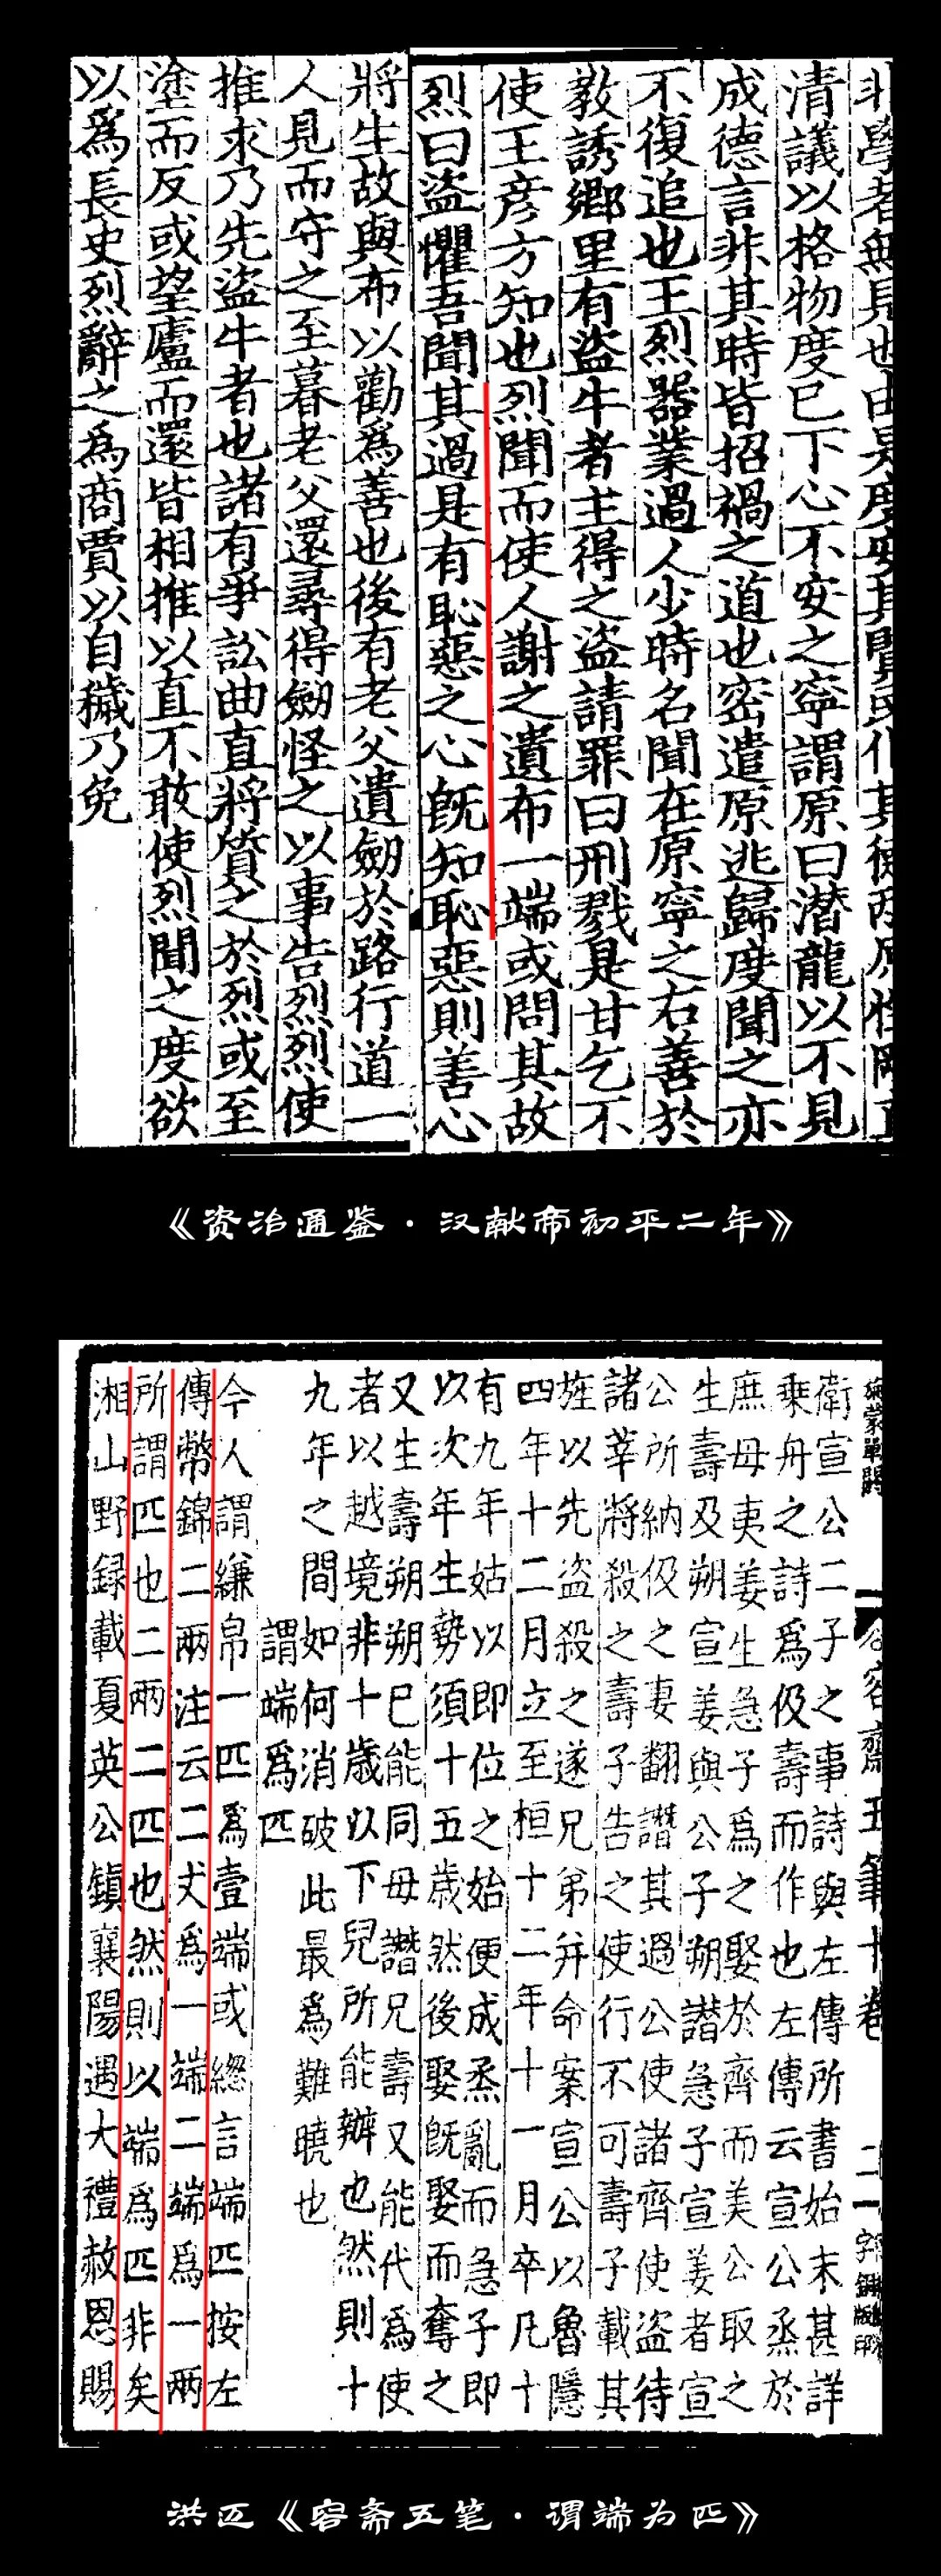 非學者無見也由是度安其賢民化其德邴原性剛直
清議以格物度已下心不安之寧謂原曰潛龍以不見
成德言非其時皆招禍之道也密遣原逃歸度聞之亦
不復追也王烈器業過人少時名聞在原寧之右善於
教誘鄉里有盜牛者主得之盜請罪曰刑戮是甘乞不
使王彥方知也烈聞而使人謝之遺布一端或問其故
烈曰盜懼吾聞其過是有恥惡之心既知恥惡則善心
將生故與布以勸爲善也後有老父遺劒於路行道一
人見而守之至暮老父還尋得劒怪之以事告烈烈使
推求乃先盜牛者也諸有爭訟曲直將質之於烈或至
塗而反或望廬而還皆相推以直不敢使烈聞之度欲
以爲長史烈辭之爲商賈以自穢乃免
《资治通鉴·汉献帝初平二年》
旃蒙單閼
容齋五筆十卷
二一
衛宣公二子之事詩與左傳所書始末甚詳
乘舟之詩爲伋壽而作也左傳云宣公烝於
庶母夷姜生急子爲之娶於齊而美公取之
生壽及朔宣姜與公子朔譖急子宣姜者宣
公所納伋之妻翻譖其過公使諸齊使盜待
諸莘將殺之壽子告之使行不可壽子載其
旌以先盜殺之遂兄弟并命案宣公以魯隱
四年十二月立至桓十二年十一月卒凡十
有九年姑以即位之始便成烝亂而急子即
以次年生勢須十五歲然後娶既娶而奪之
又生壽朔朔已能同母譖兄壽又能代爲使
者以越境非十歲以下兒所能辦也然則十
九年之間如何消破此最爲難曉也
謂端爲匹
今人謂縑帛一匹爲壹端或總言端匹按左
傳幣錦二兩注云二丈爲一端二端爲一兩
所謂匹也二兩二匹也然則以端爲匹非矣
湘山野録載夏英公鎮襄陽遇大禮赦恩賜
洪迈《容斋五笔·谓端为匹》